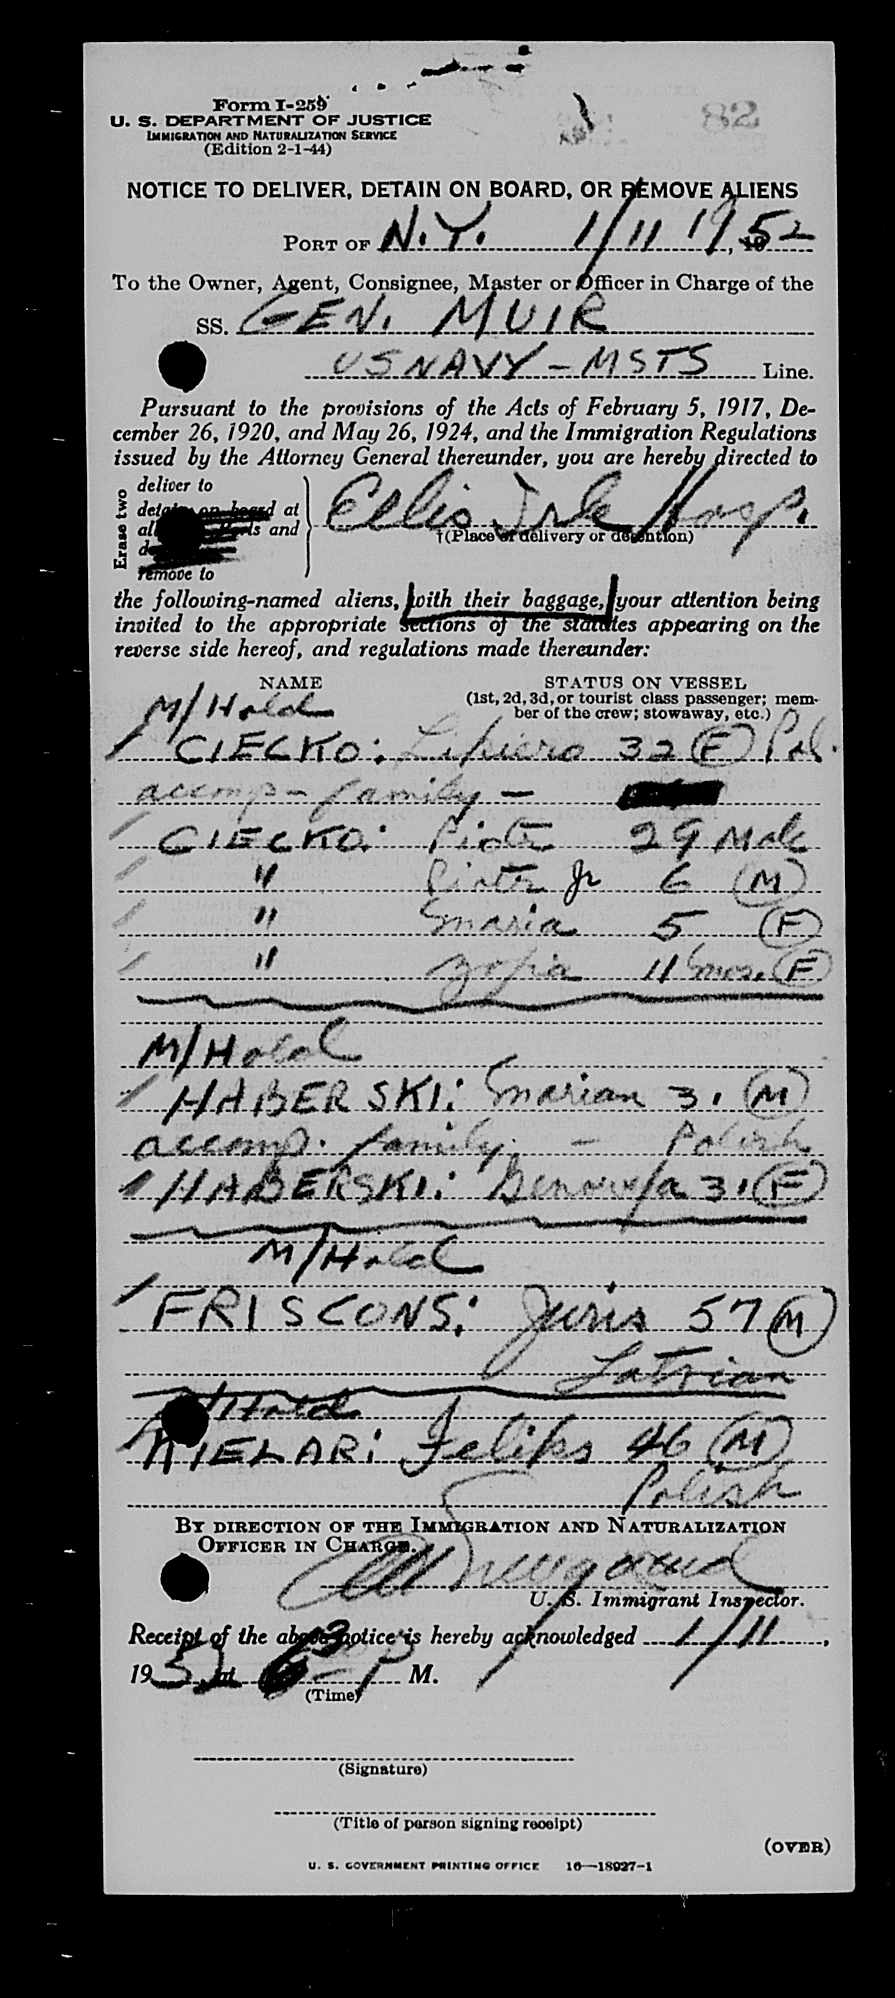 82
Form I-259
U. S. DEPARTMENT OF JUSTICE
IMMIGRATION AND NATURALIZATION SERVICE
(Edition 2-1-44)
NOTICE TO DELIVER, DETAIN ON BOARD, OR REMOVE ALIENS
PORT OF N.Y. 1/11 19, 1952
To the Owner, Agent, Consignee, Master or Officer in Charge of the
SS. GEN. MUIR
US NAVY - MSTS Line.
Pursuant to the provisions of the Acts of February 5, 1917, De-
cember 26, 1920, and May 26, 1924, and the Immigration Regulations
issued by the Attorney General thereunder, you are hereby directed to
Erase two
deliver to
detain on board at
and
remove to
Ellis Isle Hosp.
†(Place of delivery or detention)
the following-named aliens, with their baggage, your attention being
invited to the appropriate sections of the statutes appearing on the
reverse side hereof, and regulations made thereunder:
NAME STATUS ON VESSEL
(1st, 2d, 3d, or tourist class passenger; mem-
ber of the crew; stowaway, etc.)
M/Hold
CIECKO: 32 (F) Pol.
accomp - family -
CIECKO: Piotr 29 Male
" Piotr Jr 6 (M)
" Maria 5 (F)
" Zofia 11 mos. (F)
M/Hold
HABERSKI: Marian 31 (M)
accomp. family. - Polish
HABERSKI: Genowefa 31 (F)
M/Hold
FRISCONS: Juris 57 (M)
Latvian
M/Hold
KIELAR: Feliks 46 (M)
Polish
BY DIRECTION OF THE IMMIGRATION AND NATURALIZATION
OFFICER IN CHARGE.
U. S. Immigrant Inspector.
Receipt of the above notice is hereby acknowledged 1/11,
1952 at P M.
(Time)
(Signature)
(Title of person signing receipt)
(OVER)
U. S. GOVERNMENT PRINTING OFFICE 16—18927-1